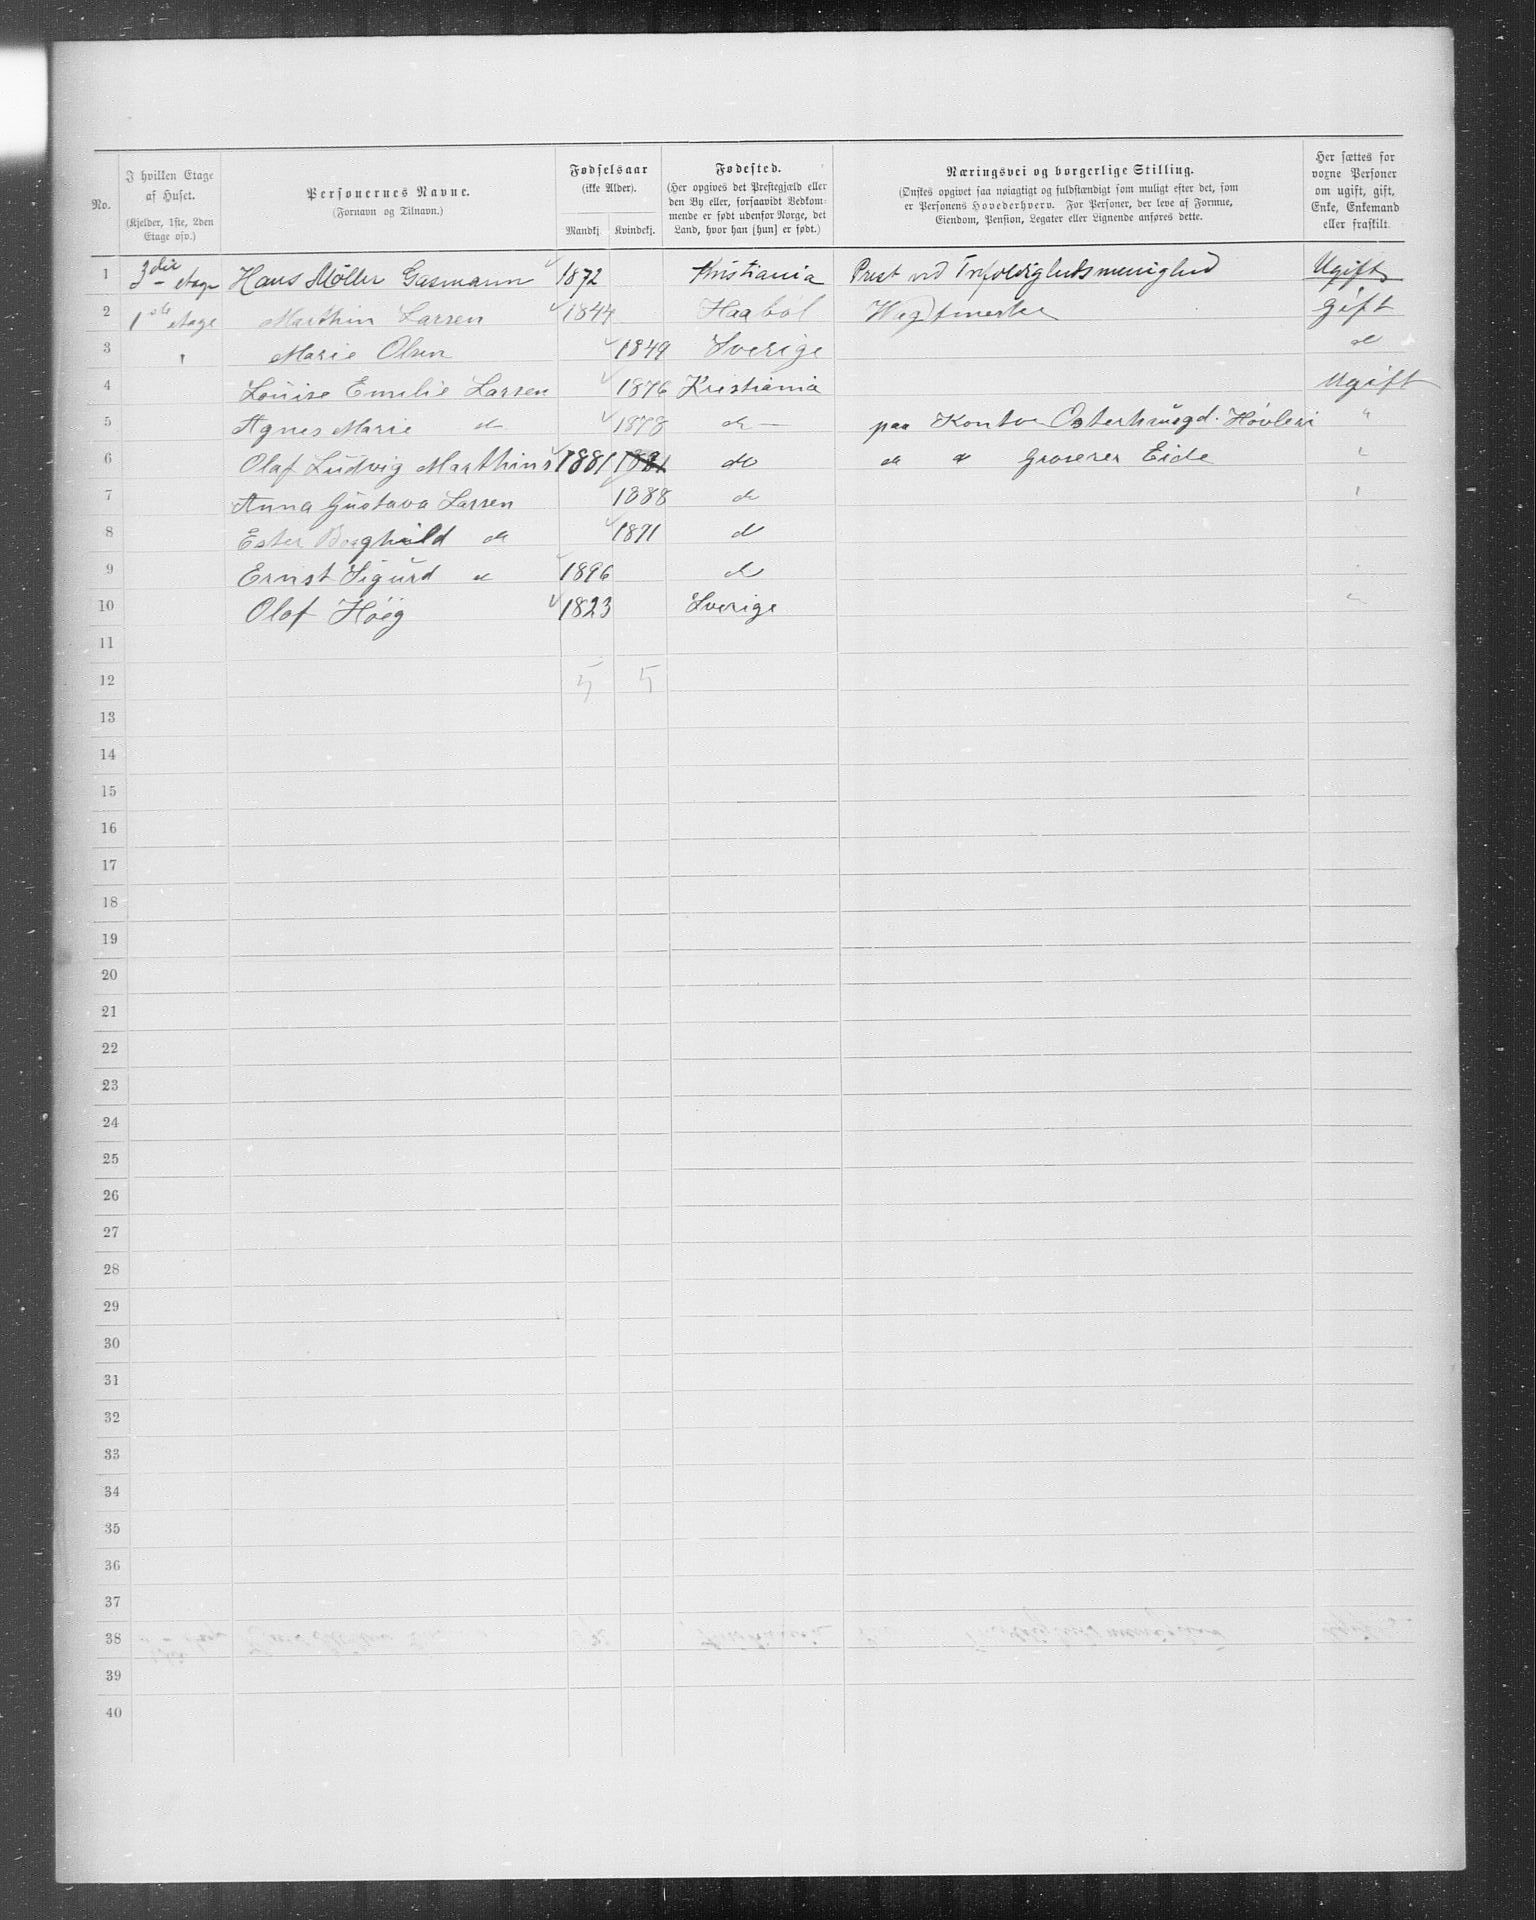 No.
I hvilken Etage
af Huset.
(Kjelder, 1ste, 2den
Etage osv.)
Personernes Navne.
(Fornavn og Tilnavn.)
Fødselsaar
(ikke Alder).
Mandkj. Kvindekj.
Fødested.
(Her opgives det Prestegjæld eller
den By eller, forsaavidt Vedkom-
mende er født udenfor Norge, det
Land, hvor han [hun] er født.)
Næringsvei og borgerlige Stilling.
(Ønskes opgivet saa nøiagtigt og fuldstændigt som muligt efter det, som
er Personens Hovederhverv. For Personer, der leve af Formue,
Eiendom, Pension, Legater eller Lignende anføres dette.
Her sættes for
voxne Personer
om ugift, gift,
Enke, Enkemand
eller fraskilt.
1 3die etage Hans Møller Gasmann 1872 Kristiania Prest ved Trefoldighedsmenighed Ugift
2 1ste etage Marthin Larsen 1844 Haabøl Gift
3 " Marie Olsen 1849 Sverige do
4 Louise Emilie Larsen 1876 Kristiania Ugift
5 Agnes Marie do 1878 do — paa Kontor Høvleri "
6 Olaf Ludvig Marthins 1881 1881 do do do Groserer Eide "
7 Anna Gustava Larsen 1888 do "
8 Ester Borghild do 1891 do
9 Ernst Sigurd do 1896 do
10 Olaf Høeg 1823 Sverige "
11
12 5 5
13
14
15
16
17
18
19
20
21
22
23
24
25
26
27
28
29
30
31
32
33
34
35
36
37
38
39
40